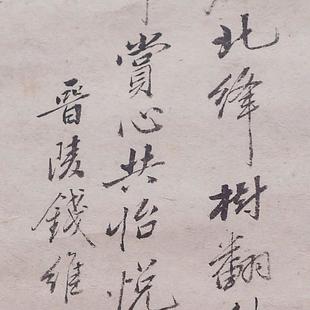 北绛樹翻
賞心共怡悅
晋陵錢維